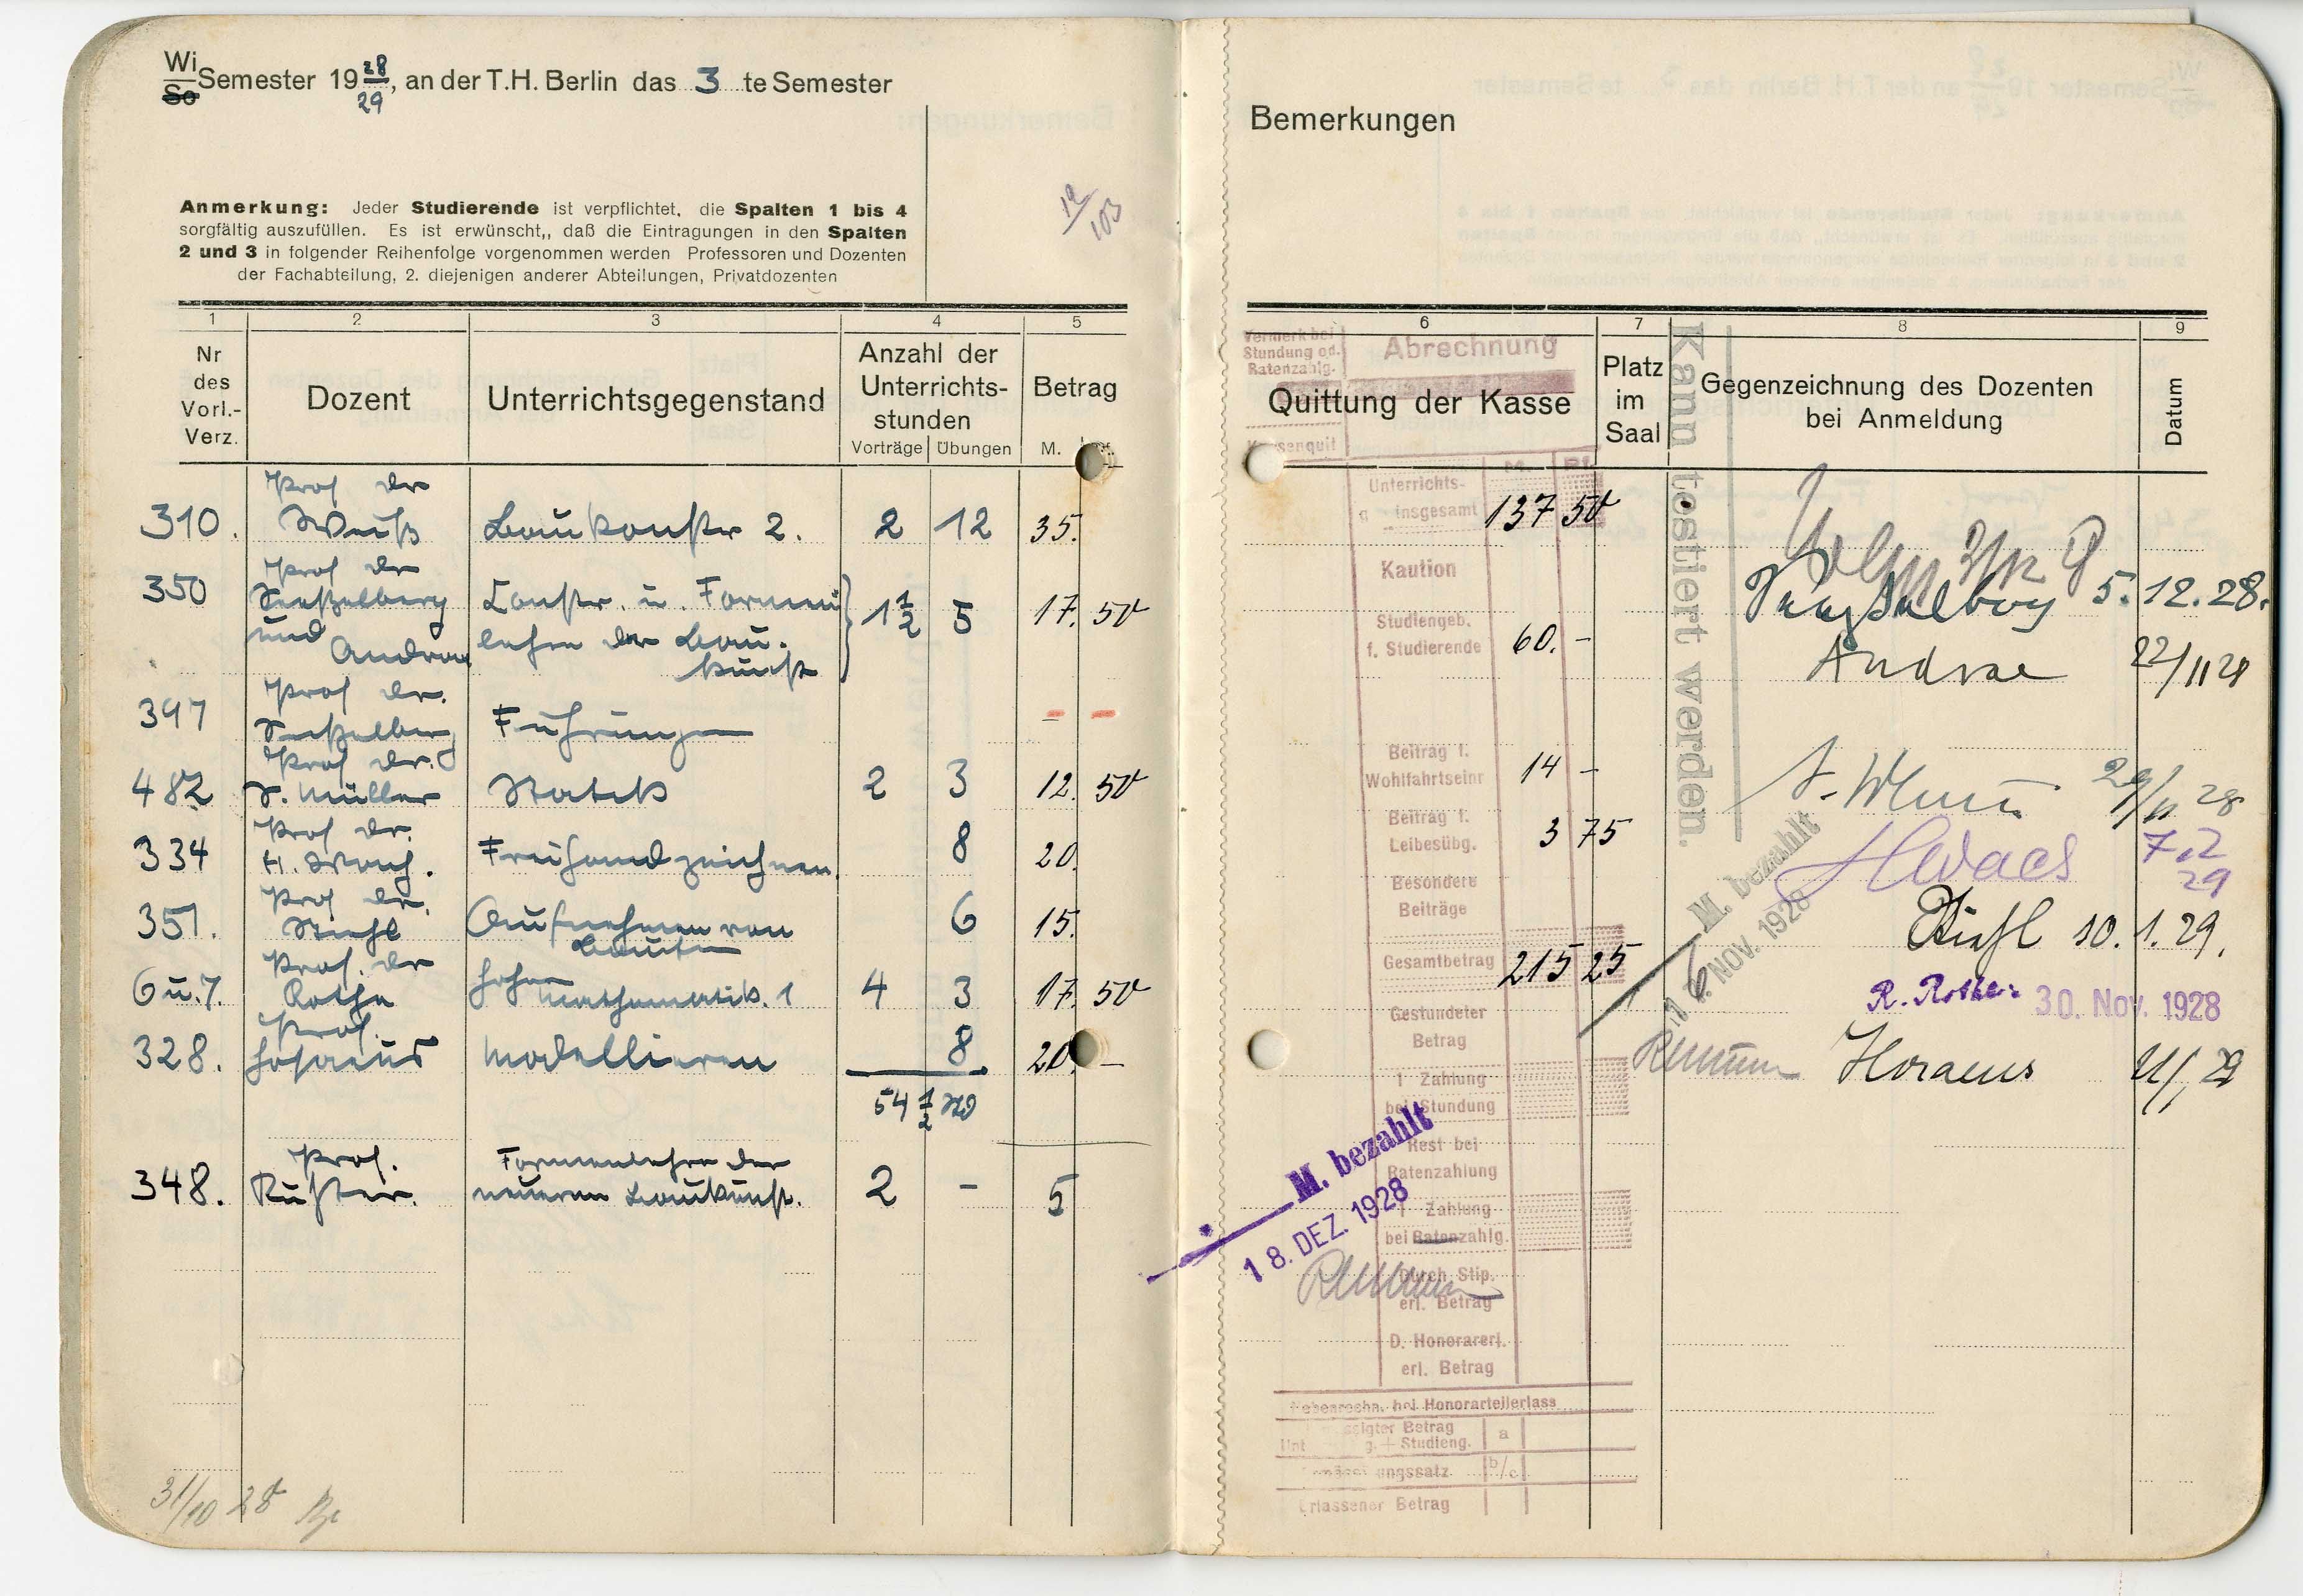 Wi
So Semester 19 28/29, an der T.H. Berlin das 3 te Semester
12/103
Anmerkung: Jeder Studierende ist verpflichtet, die Spalten 1 bis 4
sorgfältig auszufüllen. Es ist erwünscht,, daß die Eintragungen in den Spalten
2 und 3 in folgender Reihenfolge vorgenommen werden Professoren und Dozenten
der Fachabteilung, 2. diejenigen anderer Abteilungen, Privatdozenten
1 2 3 4 5
Nr des Vorl.- Verz.
Dozent
Unterrichtsgegenstand
Anzahl der Unterrichts- stunden
Vorträge Übungen
Betrag
M.
Prof Dr
310. Baukonstr 2. 2 12 35.
Prof Dr
350 Seeßelberg Konstr. u. Formen 1 1/2 5 17. 50
und Andrae lehre der Bau.
kunst
Prof Dr.
397 Seeßelberg Führungen – –
Prof Dr.
482 S. Müller Statik 2 3 12. 50
Prof Dr.
334 H. Freihandzeichnen. 8 20.
Prof Dr.
351. Stiehl Aufnehmen von 6 15.
Bauten
Prof. Dr
6 u. 7. Rothe Höhere Mathematik. 1 4 3 17. 50
Prof.
328. Hosaeus Modellieren 8 20. –
54 1/2
Prof. Formenlehre der
348. Rüster. neueren Baukunst. 2 – 5
31/10 28
Bemerkungen
6 7 8 9
Vermerk bei
Stundung od.
Ratenzahlg.
Abrechnung
Quittung der Kasse
Platz im Saal
Gegenzeichnung des Dozenten
bei Anmeldung
Datum
Kann testiert werden.
M. Pf.
Unterrichts-
insgesamt 137 50
Kaution
Studiengeb.
f. Studierende 60. –
Beitrag f.
Wohlfahrtseinr 14 –
Beitrag f.
Leibesübg. 3 75
Besondere
Beiträge
Gesamtbetrag 215 25
Gestundeter
Betrag
1 Zahlung
bei Stundung
Rest bei
Ratenzahlung
Zahlung
bei Ratenzahlg.
Durch Stip.
erl. Betrag
D. Honorarerl.
erl. Betrag
bei Honorarteilerlass
Betrag a
+ Studieng.
b/c
Erlassener Betrag
Seeßelberg 5. 12. 28.
Andrae 22/11 28
29/11 28
7.2
29
Stiehl 10. 1. 29.
R. Rothe 30. Nov. 1928
Hosaeus
M. bezahlt
NOV. 1928
M. bezahlt
18. DEZ. 1928